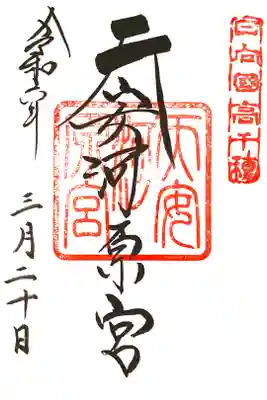 日向國高千穂
天安河原宮
天安河原宮
令和六年
三月二十日